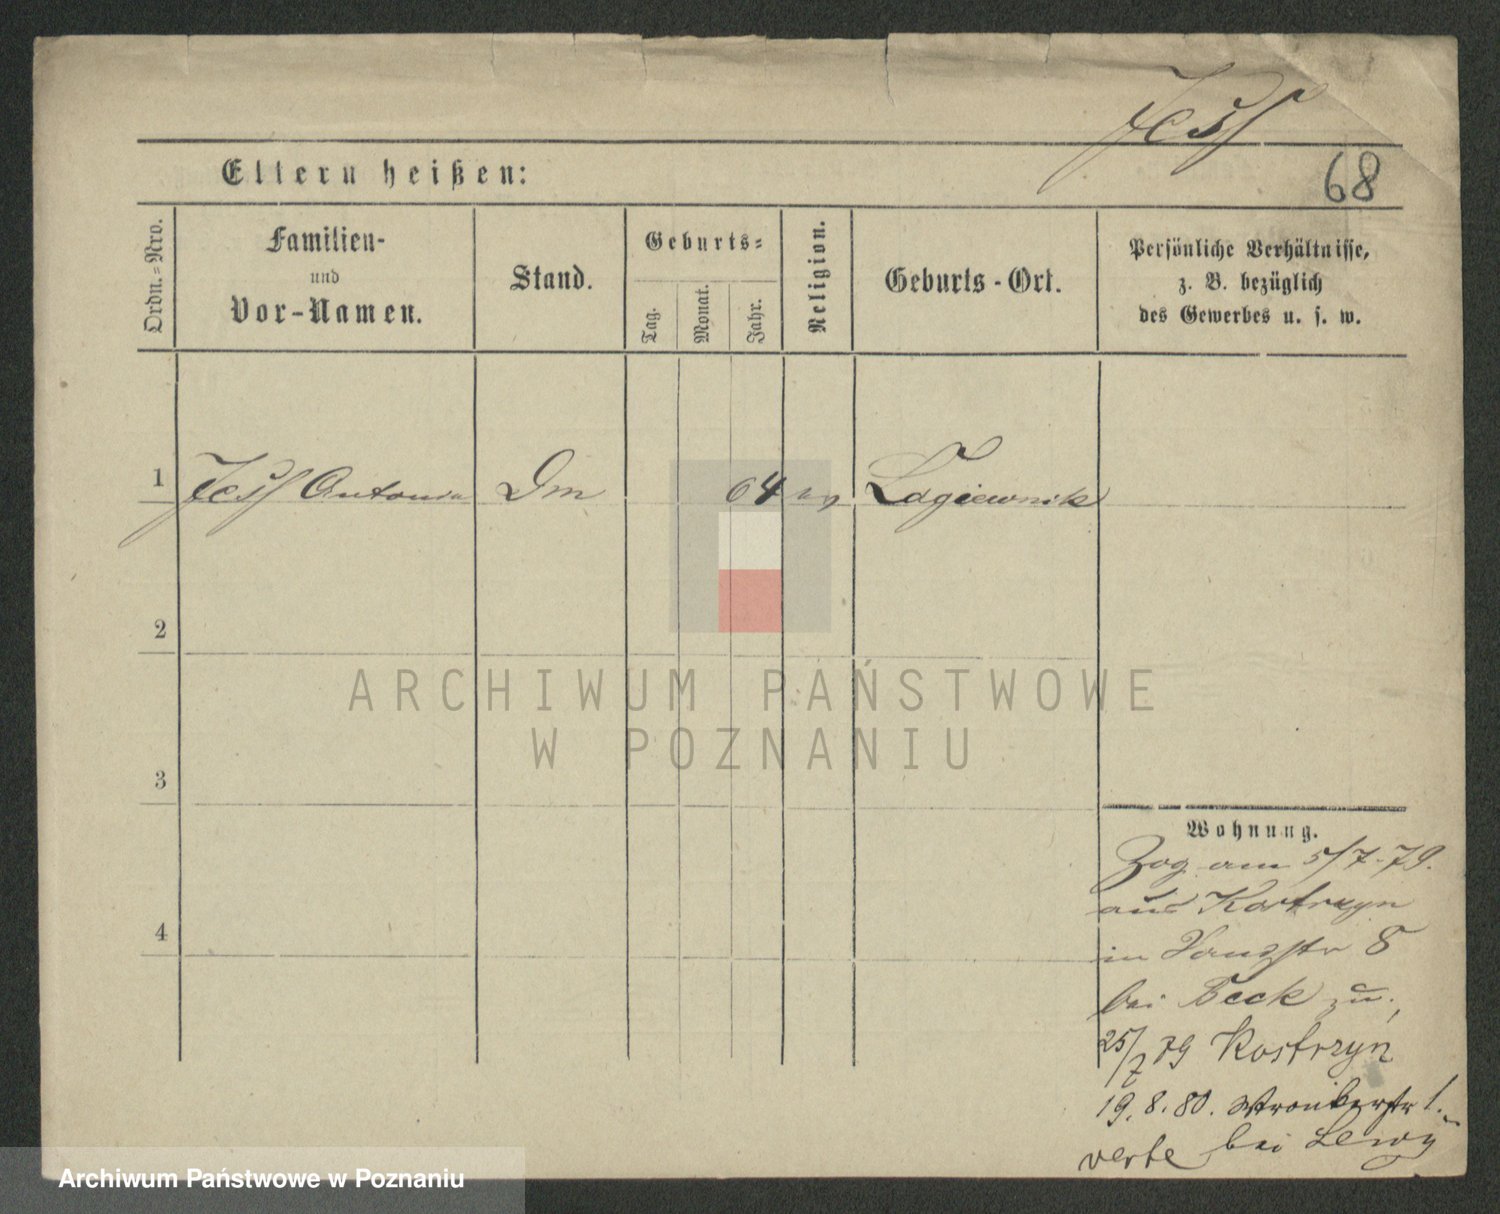 68
Eltern heißen:
Ordn.=Nro.
Familien-
und
Vor-Namen.
Stand.
Geburts=
Tag.
Monat.
Jahr.
Religion.
Geburts-Ort.
Persönliche Verhältnisse,
z. B. bezüglich
des Gewerbes u. s. w.
1 Antonia Dm 64 Lagiewnik
2
3
4
ARCHIWUM PAŃSTWOWE
W POZNANIU
Wohnung.
Zog am 5/7-79.
aus Kostrzyn
in 8
bei Beck zu.,
25/7 79 Kostrzyn
19.8.80. 1.
bei Lewy
Archiwum Państwowe w Poznaniu